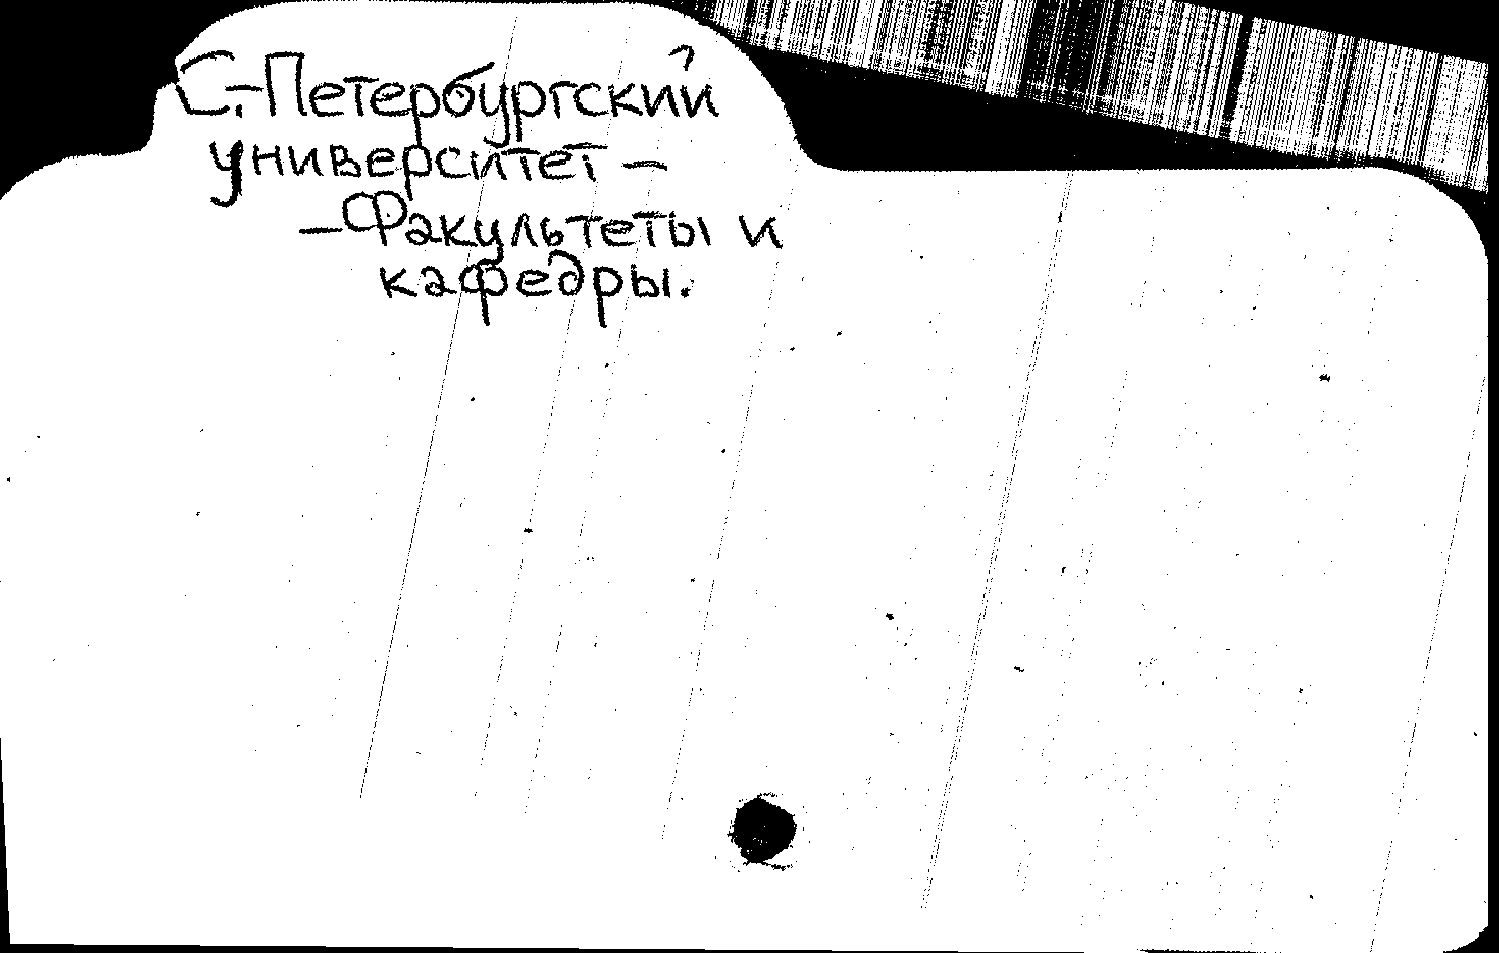 С.-Петербургский
университет –
– Факультеты и
кафедры.